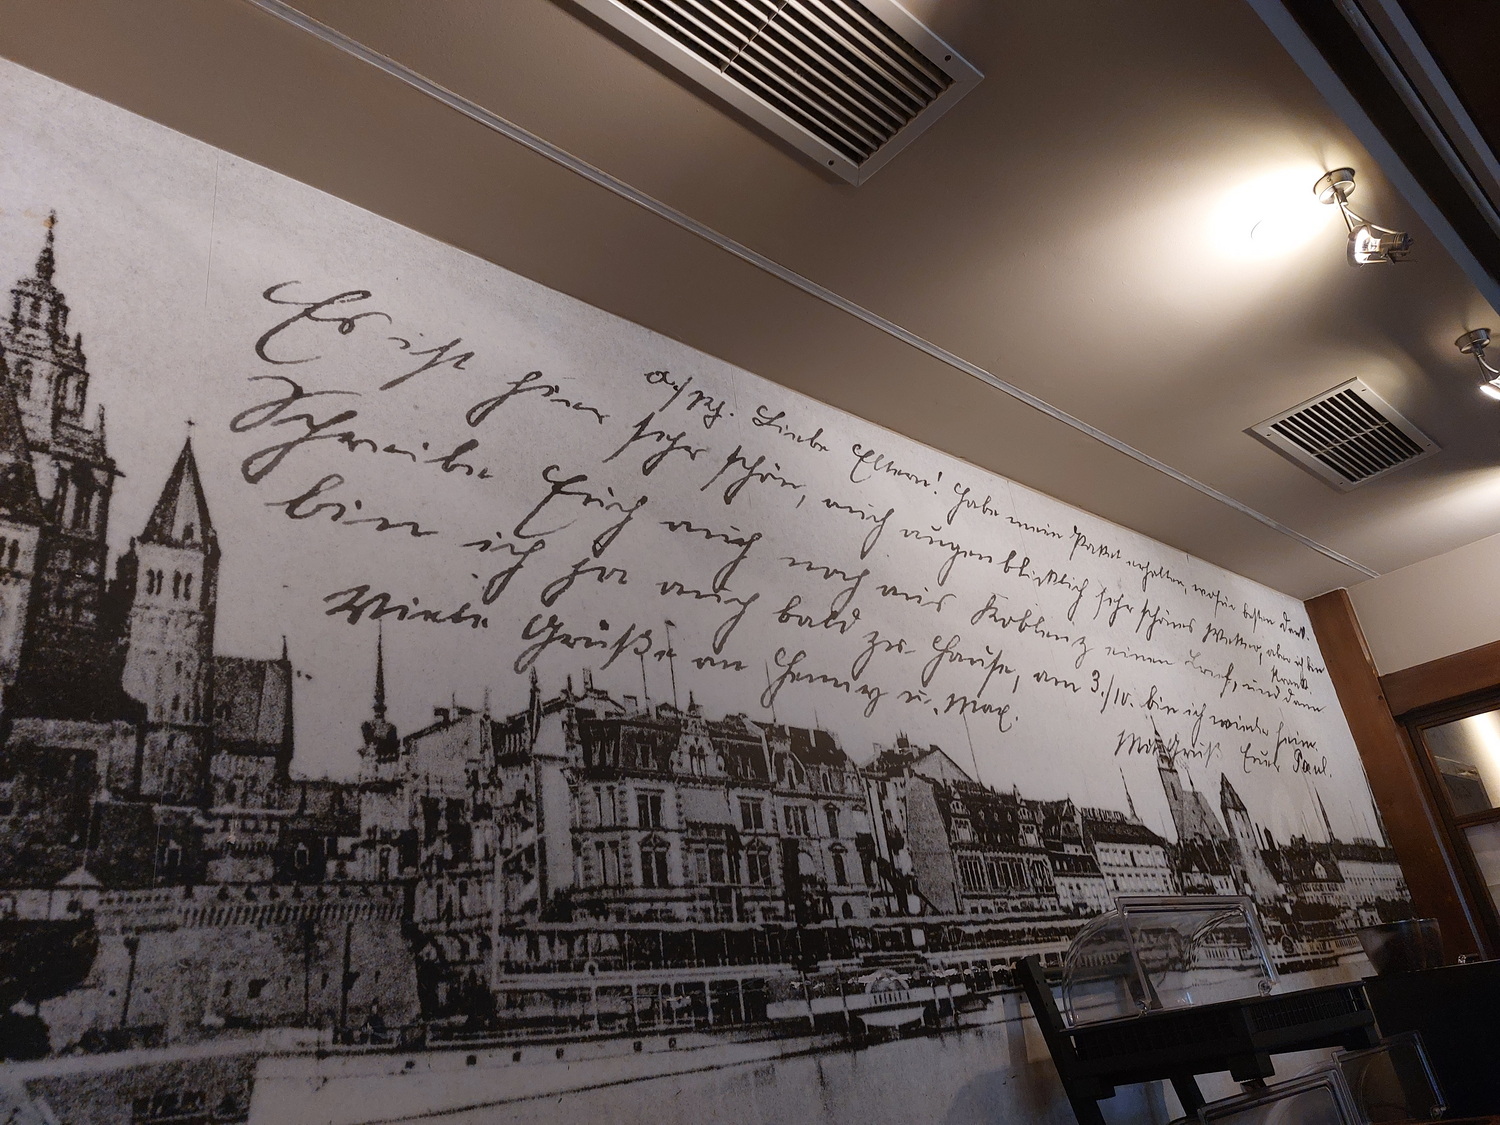 a./Rh. Liebe Eltern! Habe mein Paket erhalten, wofür besten Dank.
Es ist hier sehr schön, auch augenblicklich sehr schönes Wetter, aber ich bin krank.
Schreibe Euch auch noch aus Koblenz einen Brief, und dann
bin ich ja auch bald zu Hause, am 3./10. bin ich wieder heim.
Viele Grüße an Henny u. Max.
Mit Gruß Euer Paul.